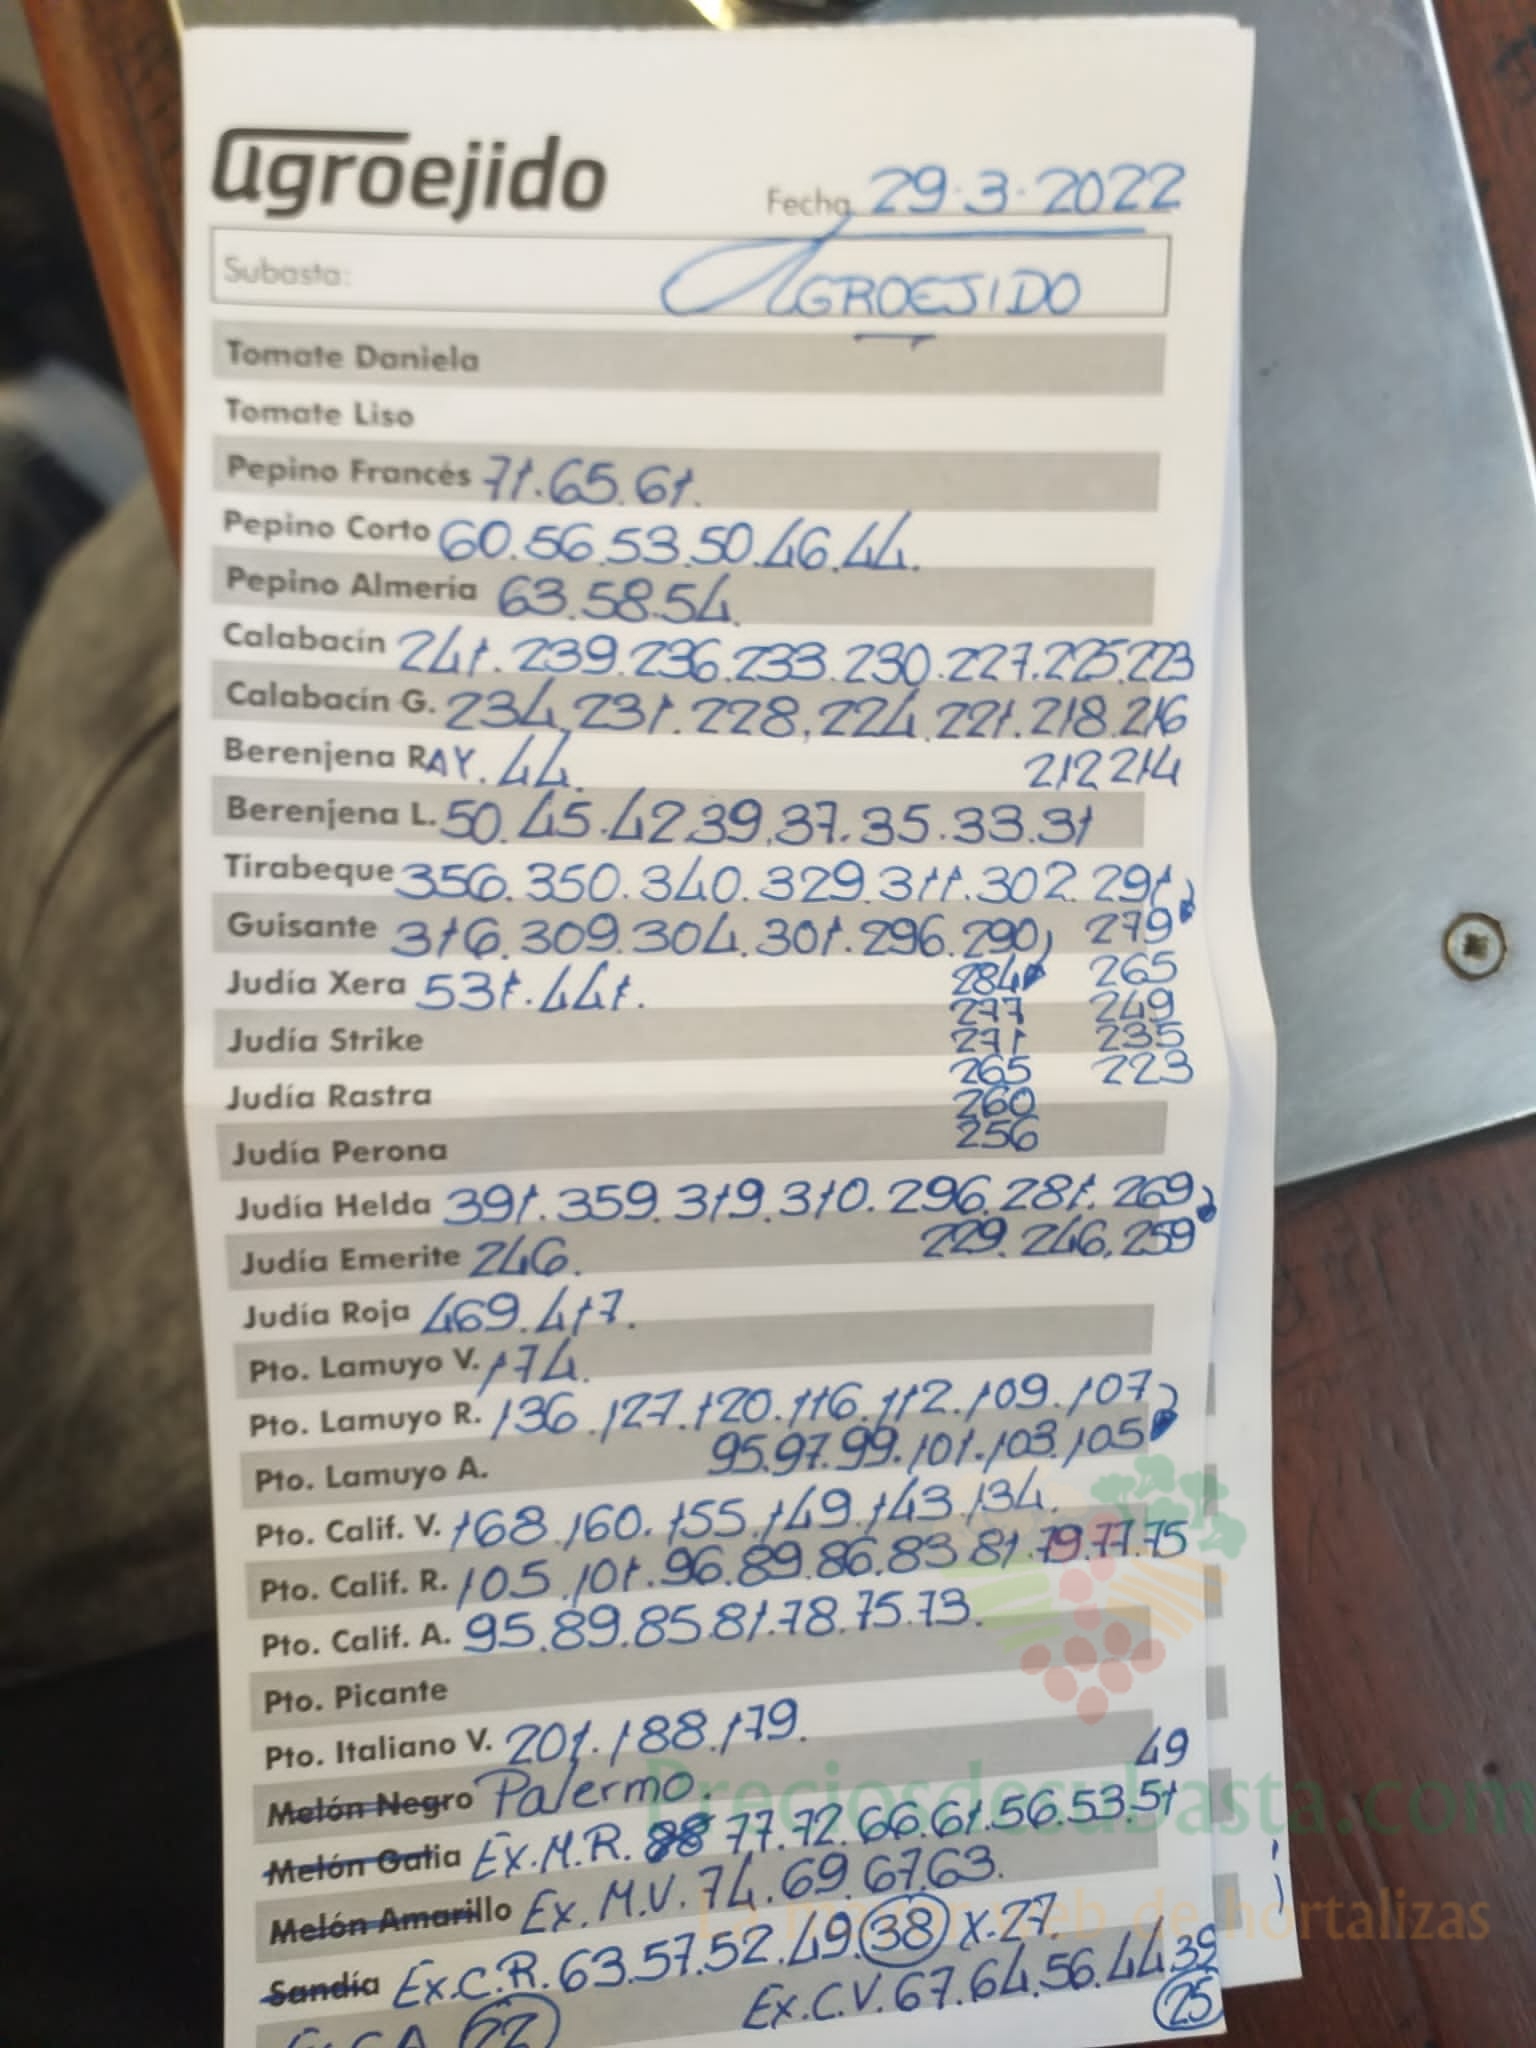 agroejido
Fecha 29·3·2022
Subasta: AGROEJIDO
Tomate Daniela
Tomate Liso
Pepino Francés 71.65.61.
Pepino Corto 60.56.53.50.46.44.
Pepino Almería 63.58.54.
Calabacín 241.239.236.233.230.227.225.223
Calabacín G. 234.231.228.224.221.218.216
Berenjena RAY. 44. 212 214
Berenjena L. 50.45.42.39.37.35.33.31
Tirabeque 356.350.340.329.311.302.291
Guisante 316.309.304.301.296.290 279
Judía Xera 531.441. 284 265
277 249
Judía Strike 271 235
265 223
Judía Rastra 260
256
Judía Perona
Judía Helda 391.359.319.310.296.281.269
Judía Emerite 246. 229.246.259
Judía Roja 469.417.
Pto. Lamuyo V. 174.
Pto. Lamuyo R. 136.127.120.116.112.109.107
Pto. Lamuyo A. 95.97.99.101.103.105
Pto. Calif. V. 168.160.155.149.143.134.
Pto. Calif. R. 105.101.96.89.86.83.81.79.77.75
Pto. Calif. A. 95.89.85.81.78.75.73.
Pto. Picante
Pto. Italiano V. 201.188.179.
49
Melón Negro Palermo.
Melón Galia Ex.M.R. 88 77.72.66.61.56.53.51
Melón Amarillo Ex.M.V. 74.69.67.63.
Sandía Ex.C.R. 63.57.52.49.38 X.27.
Ex.C.V. 67.64.56.44.39
Ex.C.A. 22 25
Preciosdesubasta.com
La mayor web de hortalizas